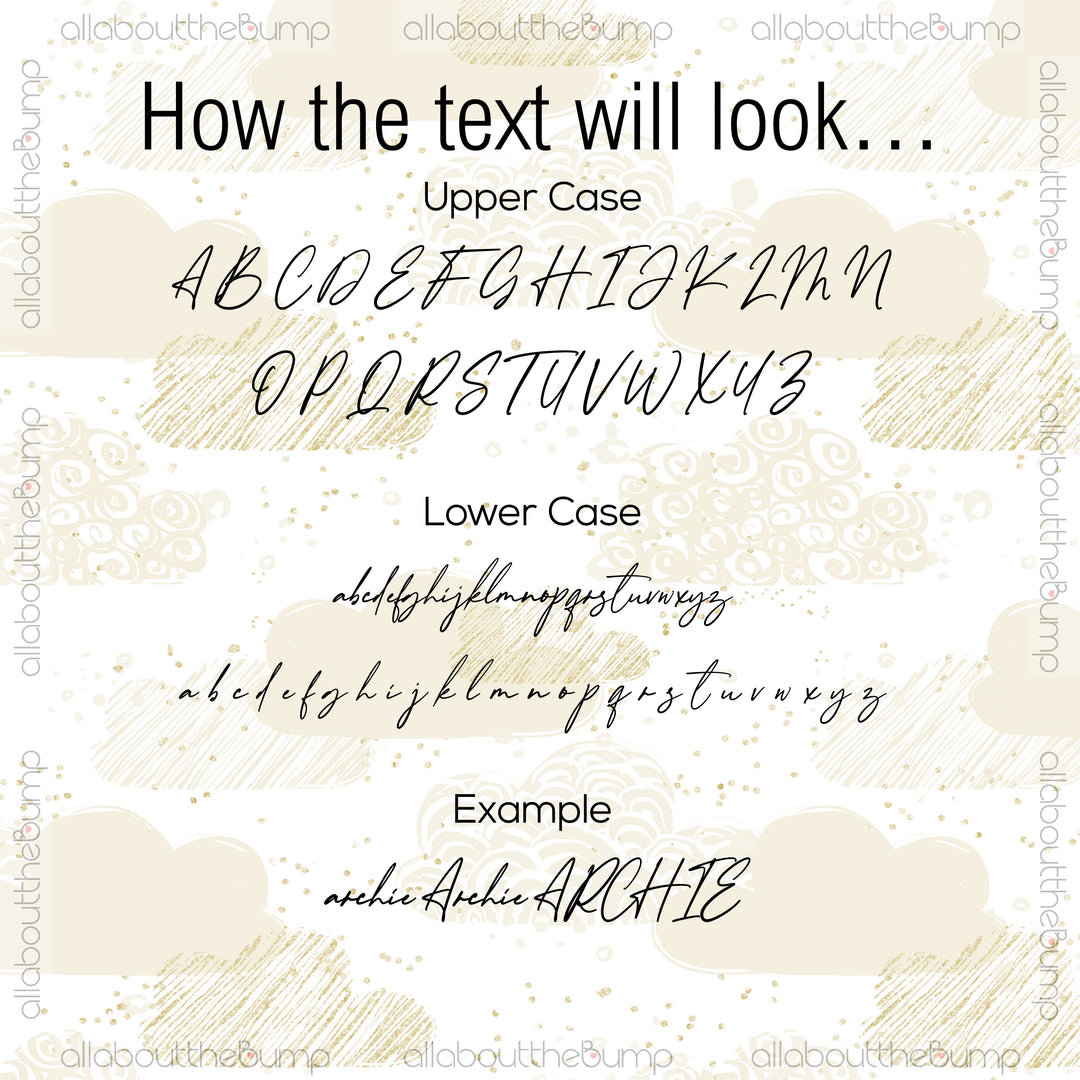 allaboutthebump allaboutthebump allaboutthebump
How the text will look...
Upper Case
A B C D E F G H I J K L M N
O P Q R S T U V W X Y Z
Lower Case
abcdefghijklmnopqrstuvwxyz
a b c d e f g h i j k l m n o p q r s t u v w x y z
Example
archie Archie ARCHIE
allaboutthebump
allaboutthebump
allaboutthebump
allaboutthebump
allaboutthebump
allaboutthebump
allaboutthebump allaboutthebump allaboutthebump